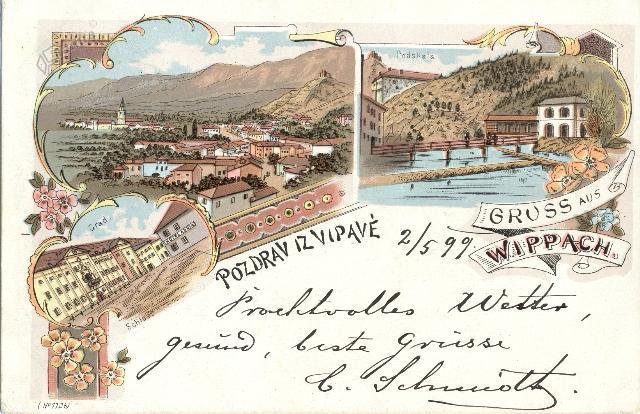 Podskala
Grad.
Schloss
POZDRAV IZ VIPAVÉ
GRUSS AUS
WIPPACH
2/5 99
Prachtvolles Wetter,
gesund, beste Grüsse
C. Schmidt.